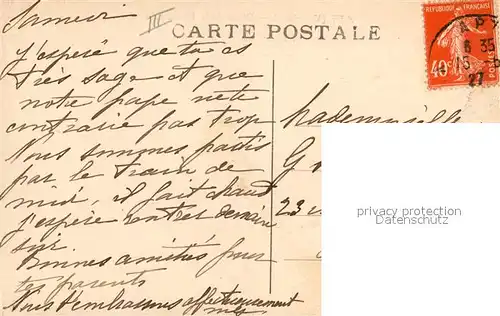 Samedi
III
CARTE POSTALE
RÉPUBLIQUE FRANÇAISE
40c
POSTES
AP
6 35
15
27
J'espère que tu es
très sage et que
notre pape ne te
contrarie pas trop
Nous sommes partis
par le train de
midi, il fait chaud
j'espère rentrer demain
soir
Bonnes amitiés pour
tes parents
Nous t'embrassons affectueusement
Mademoiselle
G
23
privacy protection
Datenschutz